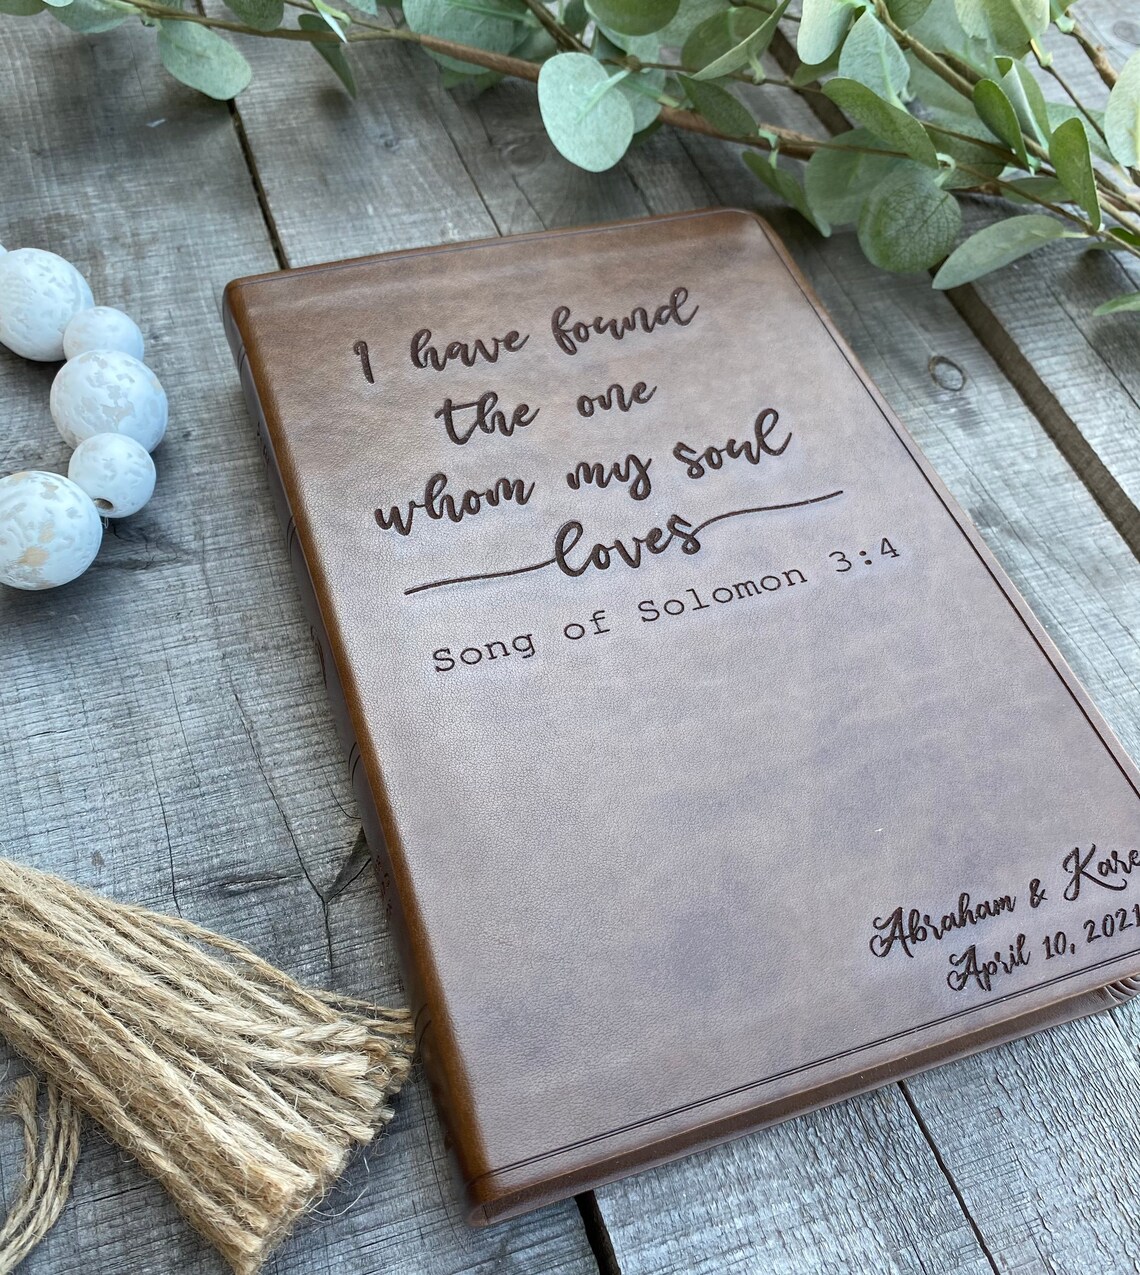 I have found
the one
whom my soul
loves
Song of Solomon 3:4
Abraham & Kare
April 10, 2021